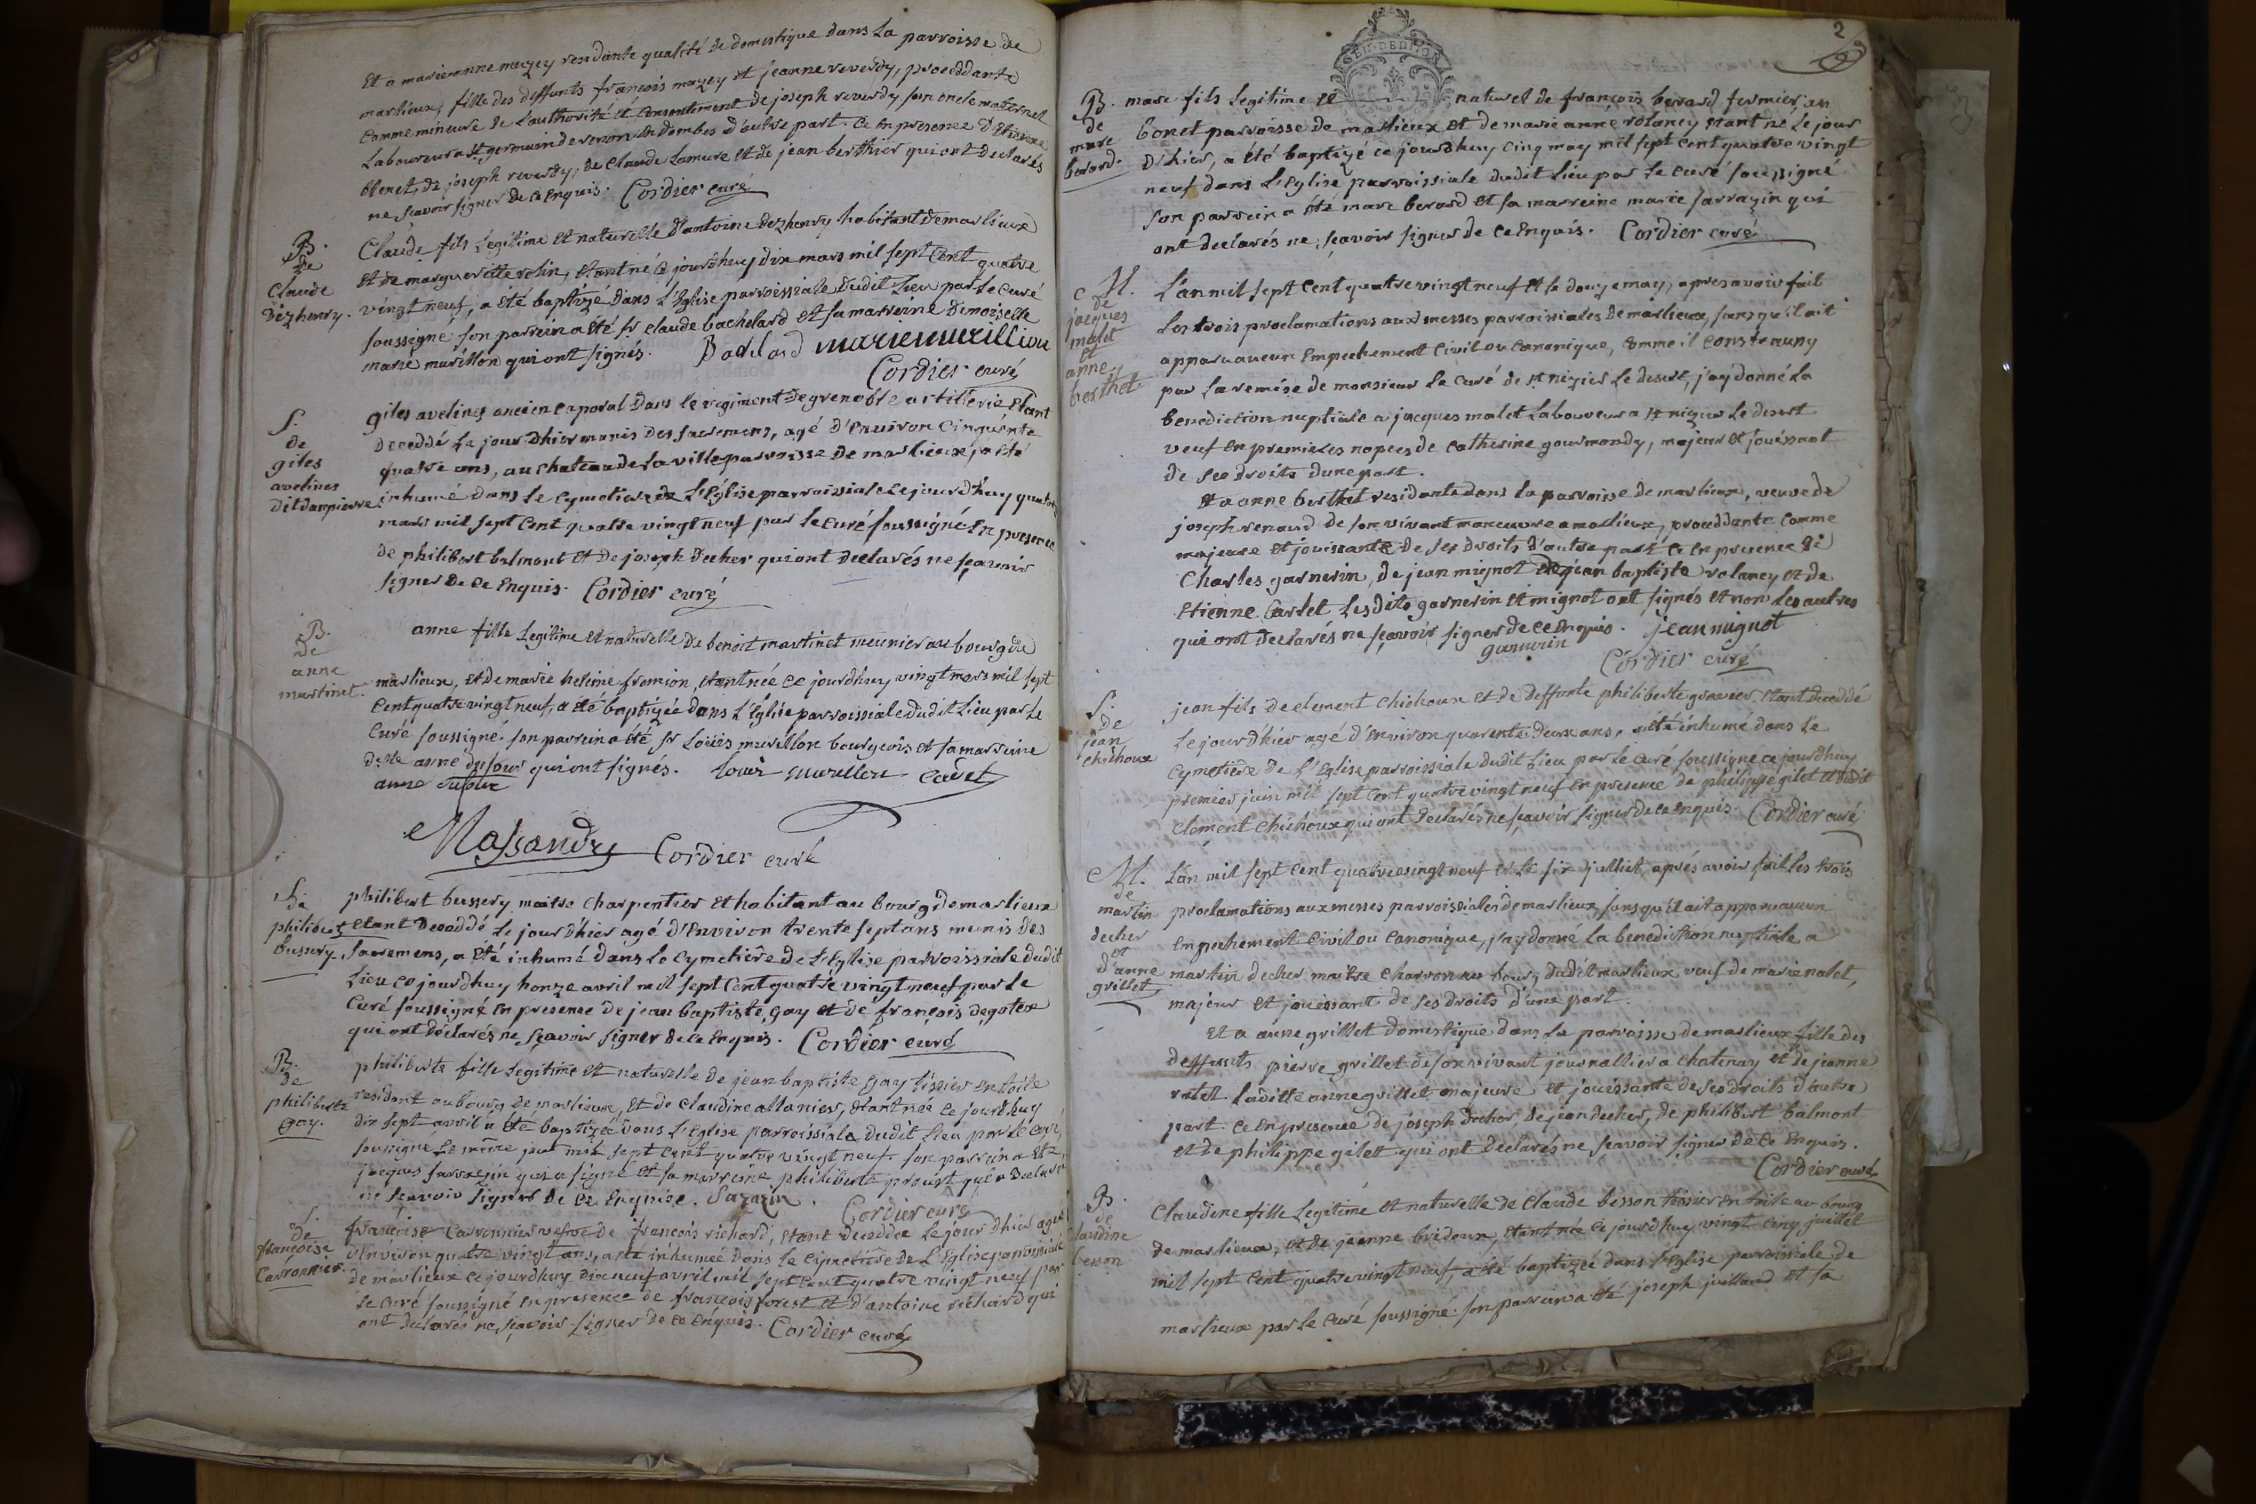 Et a marieanne mazey residante qualité de domestique dans la parroisse de
marlieux, fille des deffunts françois mazey et jeanne reverdy, proceddante
comme mineure de l'authorité et consentiment de joseph reverdy son oncle maternel
laboureur a st germain de renon en dombes d'autre part. Ce en presence d'Etienne
blenet, de joseph reverdy, de Claude Lamure et de jean berthier qui ont declarés
ne sçavoir signer de ce Enquis. Cordier curé
B.
de
Claude
Dezhenry.
Claude fils Legitime Et naturelle d'antoine Dezhenry habitant de marlieux
et de margueritte rolin, etant né ce jourdhuy dix mars mil sept Cent quatre
vingt neuf, a été baptizé dans L'Eglise parroissiale dudit Lieu par le Curé
soussigné son parrein a été sr Claude bachelard et sa marreine Demoiselle
marie murillon qui ont signés. Bachelard marie murillion
Cordier curé
S.
de
giles
avelines
dit danpierre
giles avelines ancien caporal dans le regiment de grenoble artillerie, Etant
deceddé Le jour Dhier munis des sacremens, agé d'Environ Cinquente
quatre ans, au chateau de la ville parroisse de marlieux, a été
inhumé dans Le Cymetiere de L'Eglise parroissiale cejourdhuy
mars mil sept Cent quatre vingt neuf par le curé soussigné En presence
de philibert balmont et de joseph decher qui ont declarés ne sçavoir
signer de ce Enquis. Cordier curé
B.
de
anne
martinet.
anne fille Legitime et naturelle de benoit martinet meunier au bourg de
marlieux, et de marie helene fromion, etant née ce jourdhuy vingt mars mil sept
Cent quatre vingt neuf, a été baptizée dans L'Eglise parroissiale dudit Lieu par Le
Curé soussigné. son parrein a été sr Loüis murillon bourgeois et sa marreine
delle anne dufour qui ont signés. Louis murillon cadet
anne dufour
Massandry Cordier curé
S.
de
philibert
bussery.
philibert bussery maitre charpentier et habitant au bourg de marlieux
etant deceddé Le jour dhier agé d'Environ trente sept ans munis des
sacremens, a été inhumé dans Le Cymetiere de L'Eglise parroissiale dudit
Lieu ce jourdhuy honze avril mil sept Cent quatre vingt neuf par le
Curé soussigné en presence de jean baptiste gay et de françois degatex
qui ont déclarés ne sçavoir signer de ce Enquis. Cordier curé
B.
de
philiberte
gay.
philiberte fille Legitime et naturelle de jean baptiste gay tissier en toile
residant au bourg de marlieux, et de Claudine allanier, etant née ce jourdhuy
dix sept avril a été baptizée dans L'Eglise parroissiale dudit Lieu par le curé
soussigné Le même jour mil sept Cent quatre vingt neuf. son parrein a été
jacques sarrazin qui a signé et sa marreine philiberte prouet qui a declaré
ne sçavoir signer de ce Enquise. Sarazin. Cordier curé
S.
de
françoise
Carronnier
françoise Carronnier veuve de françois richard, etant deceddée Le jour dhier agée
d'Environ quatre vingt ans, a été inhumée dans le Cymetiere de L'Eglise parroissiale
de marlieux ce jourdhuy dix neuf avril mil sept Cent quatre vingt neuf par
Le Curé soussigné en presence de françois forest et d'antoine richard qui
ont declarés ne sçavoir signer de ce Enquis. Cordier curé
2
B.
de
marc
berard.
marc fils Legitime et naturel de françois berard fermier au
bonet parroisse de marlieux et de marie anne rolancy etant né Le jour
D'hier, a été baptizé ce jourdhuy cinq may mil sept cent quatre vingt
neuf dans L'Eglise parroissiale dudit Lieu par Le Curé soussigné
son parrein a été marc berard et sa marreine marie sarrazin qui
ont declarés ne sçavoir signer de ce Enquis. Cordier curé
M.
de
jacques
malet
et
anne
berthet
L'an mil sept Cent quatre vingt neuf et le douze may, apres avoir fait
Les trois proclamations aux messes parroissiales de marlieux, sans qu'il ait
apparu aucun Empechement civil ou canonique, comme il conste
par la remise de monsieur Le Curé de st nizier Le desert, j'ay donné La
benediction nuptiale a jacques malet Laboureur a st nizier Le desert
veuf en premieres nopces de catherine gourmondy, majeur et jouéssant
de ses droits d'une part.
Et a anne berthet residante dans la parroisse de marlieux, veuve de
joseph renaud de son vivant manoeuvre a marlieux, proceddante comme
majeure et jouissante de ses droits d'autre part ce en presence de
Charles garnerin, de jean mignot de jean baptiste rolancy et de
Etienne Carlet Lesdits garnerin et mignot ont signés et non Les autres
qui ont declarés ne sçavoir signer de ce Enquis. jean mignot
garnerin
Cordier curé
S.
de
jean
chichoux
jean fils de clement Chichoux et de deffunte philiberte gravier etant deceddé
Le jour dhier agé d'Environ quarente deux ans, a été inhumé dans Le
Cymetiere de L'Eglise parroissiale dudit Lieu par Le Curé soussigné ce jourdhuy
premier juin mil sept Cent quatre vingt neuf en presence de philippe gilet et dudit
Clement Chichoux qui ont declarés ne sçavoir signer de ce enquis. Cordier curé
M.
de
martin
decher
et
d'anne
grillet
L'an mil sept Cent quatre vingt neuf et Le six juillet, après avoir fait Les trois
proclamations aux messes parroissiales de marlieux, sans qu'il ait apparu aucun
Enpechement Civil ou Canonique, j'ay donné La benediction nuptiale a
martin decher maitre charron au bourg dudit marlieux veuf de marie nalet,
majeur et jouissant de ses droits d'une part.
Et a anne grillet domestique dans la parroisse de marlieux fille des
deffunts pierre grillet de son vivant journallier a Chatenay et de jeanne
ratet laditte anne grillet majeure et jouissante de ses droits d'autre
part. Ce En presence de joseph decher, de jean decher, de philibert balmont
et de philippe gilet qui ont declarés ne sçavoir signer de ce Enquis.
Cordier curé
B.
de
Claudine
besson
Claudine fille Legitime et naturelle de Claude besson tissier en toile au bourg
de marlieux, et de jeanne bridoux, etant née ce jourdhuy vingt cinq juillet
mil sept Cent quatre vingt neuf, a été baptizée dans L'Eglise parroissiale de
marlieux par Le Curé soussigné. son parrein a été joseph juilland et sa